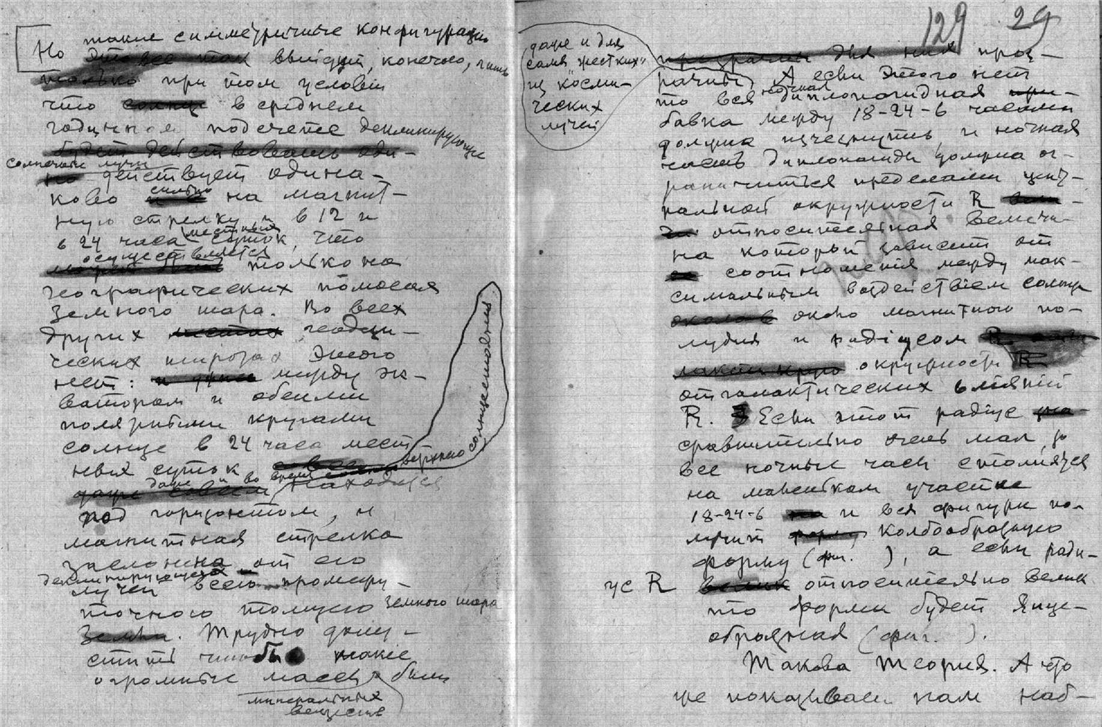 Но такие симметричные конфигурации
выйдут, конечно, лишь
при том условии
что в среднем
годичном подсчете деклинирующие
солнечные лучи
действует одина-
ково сильно на магнит-
ную стрелку и в 12 и
в 24 часа местных суток, что
осуществляется только на
географических полюсах
земного шара. Во всех
других геодези-
ческих широтах этого
нет: между эк-
ватором и обеими
полярными кругами
солнце в 24 часа мест-
ных суток
даже и во время верхнего солнцестояния
находится
под горизонтом, и
магнитная стрелка
заслонена от его
деклинирующих
лучей всею промежу-
точного толщею земного шара
Трудно допу-
стить чтобы такие
огромные массы были
минеральных
веществ
129 29
даже и для
самых жестких
из косми-
ческих
лучей
для них проз-
рачны. А если этого нет
то вся ночная диплопоидная при-
бавка между 18-24-6 часами
должна исчезнуть и ночная
часть диплопоиды должна ог-
раничиться пределами цент-
ральной окружности R
относительная величи-
на которой зависит от
соотношения между мак-
симальным воздействием солнца
около магнитного по-
лудня и радиусом
окружности R
отгалактических влияний
R. Если этот радиус
сравнительно очень мал, то
все ночные часы столпятся
на маленьком участке
18-24-6 и вся фигура по-
лучит колбообразную
форму (фиг. ), а если ради-
ус R относительно велик
то форма будет яйце-
образная (фиг. ).
Такова теория. А что
же показывают нам наб-